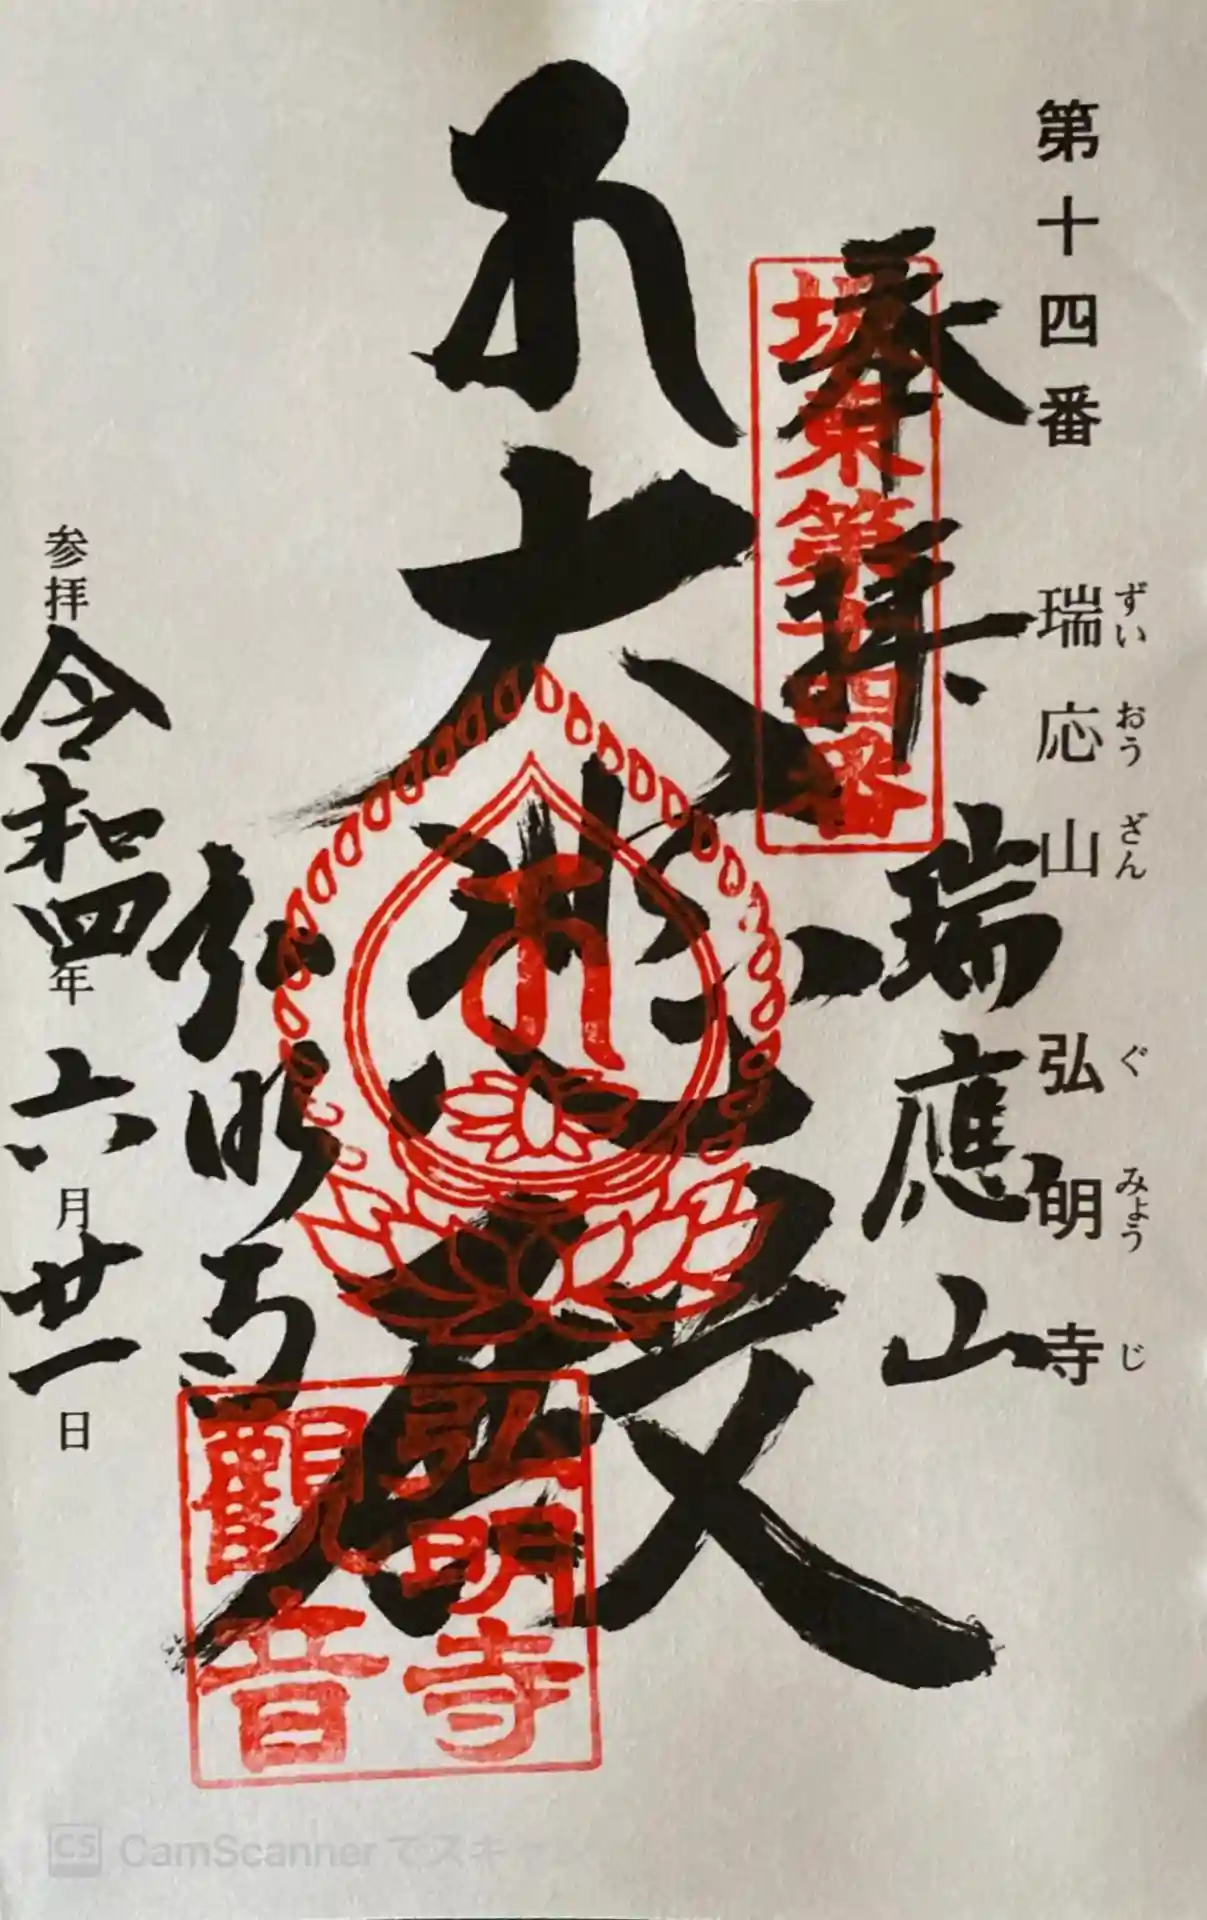 第十四番 瑞応山 弘明寺
ずいおうざん ぐみょうじ
奉拝 瑞應山
坂東第十四番
大悲殿
弘明寺
弘明寺
觀音
参拝 令和四年 六月廿一日
CS CamScannerでスキャン